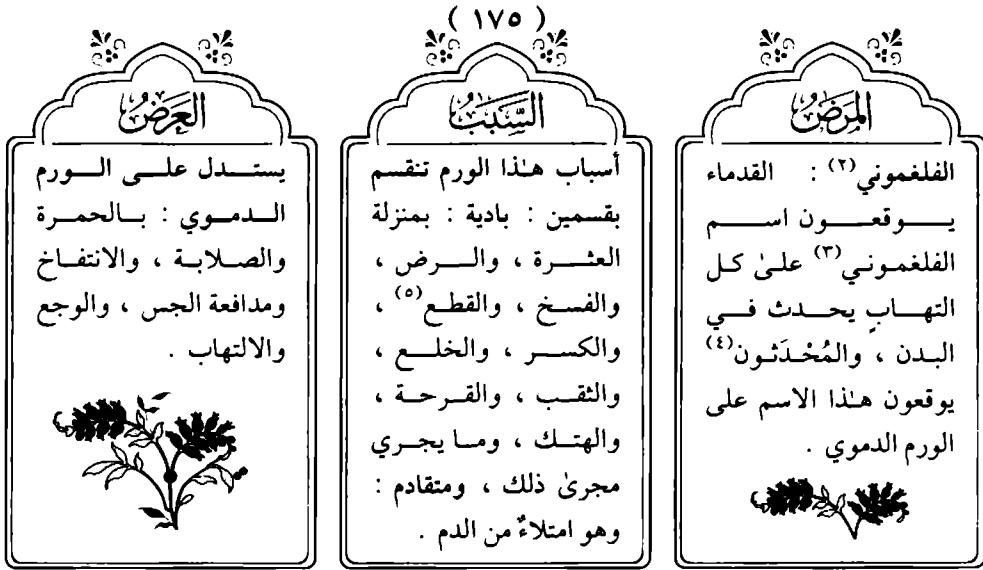 ( ١٧٥ )
المَرَضُ
الفلغموني (٢) : القدماء
يوقعون اسم
الفلغموني (٣) علىٰ كل
التهابٍ يحدث في
البدن ، والمُحْدَثون (٤)
يوقعون هـٰذا الاسم على
الورم الدموي .
السَّبَبُ
أسباب هـٰذا الورم تنقسم
بقسمين : بادية : بمنزلة
العثرة ، والرض ،
والفسخ ، والقطع (٥) ،
والكسر ، والخلع ،
والثقب ، والقرحة ،
والهتك ، وما يجري
مجرىٰ ذلك ، ومتقادم :
وهو امتلاءٌ من الدم .
العَرَضُ
يستدل على الورم
الدموي : بالحمرة
والصلابة ، والانتفاخ
ومدافعة الجس ، والوجع
والالتهاب .